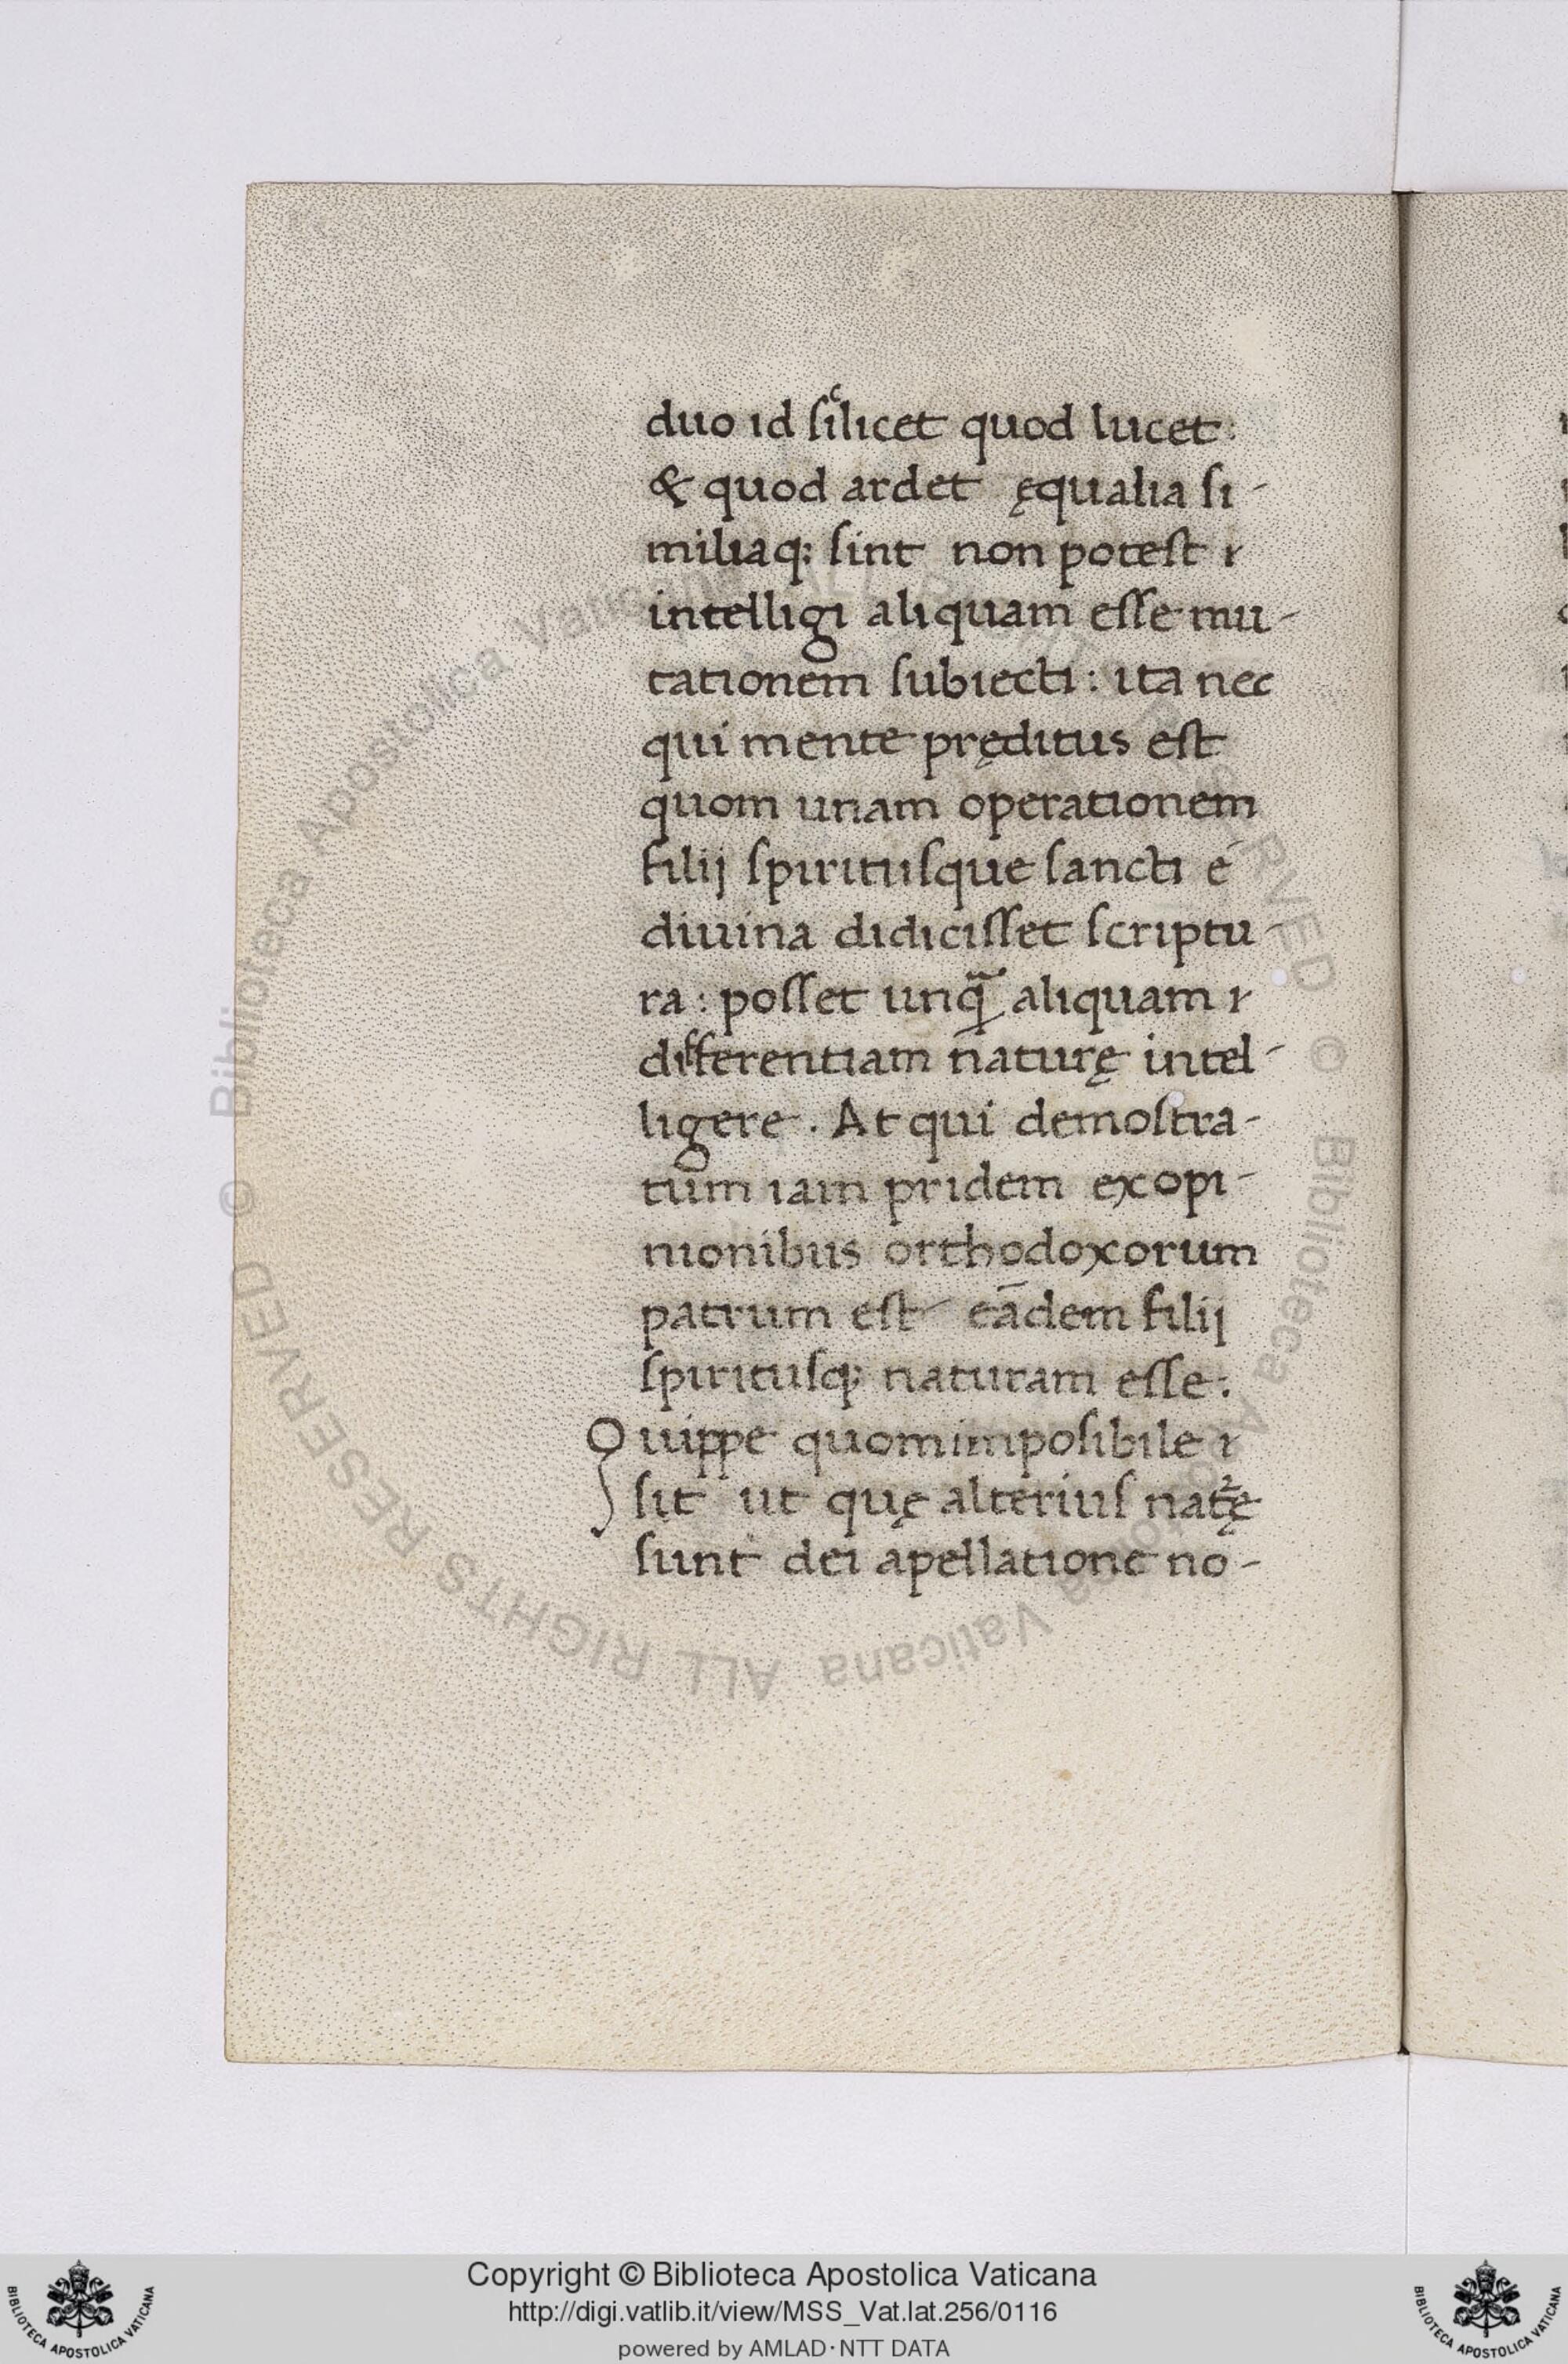 duo id silicet quod lucet:
& quod ardet ęqualia si-
miliaq; sint non potest r
intelligi aliquam esse mu-
tationem subiecti: ita nec
qui mente pręditus est
quom unam operationem
filij spiritusque sancti é
diuina didicisset scriptu-
ra: posset unq̃ aliquam r
differentiam naturę intel-
ligere. At qui demostra-
tum iam pridem ex opi-
nionibus orthodoxorum
patrum est eādem filij
spiritusq; naturam esse.
Quippe quom imposibile r
sit ut quę alterius nat̃ę
sunt dei apellatione no-
© Biblioteca Apostolica Vaticana ALL RIGHTS RESERVED © Biblioteca Apostolica Vaticana ALL RIGHTS RESERVED
Copyright © Biblioteca Apostolica Vaticana
http://digi.vatlib.it/view/MSS_Vat.lat.256/0116
powered by AMLAD·NTT DATA
BIBLIOTECA APOSTOLICA VATICANA
BIBLIOTECA APOSTOLICA VATICANA